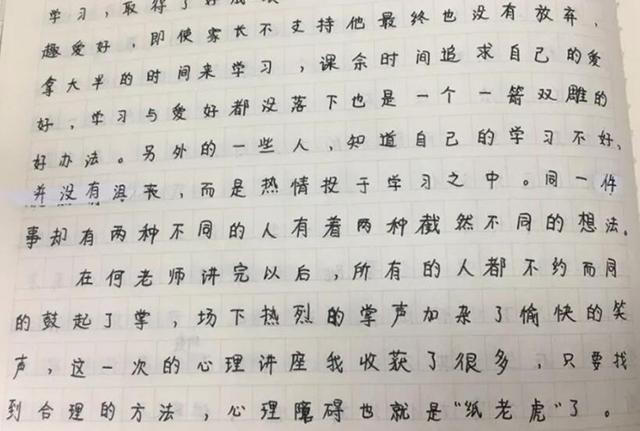 学习，取得了好成
趣爱好，即使家长不支持他最终也没有放弃，
拿大半的时间来学习，课余时间追求自己的爱
好，学习与爱好都没落下也是一个一箭双雕的
好办法。另外的一些人，知道自己的学习不好，
并没有沮丧，而是热情投于学习之中。同一件
事却有两种不同的人有着两种截然不同的想法。
在何老师讲完以后，所有的人都不约而同
的鼓起了掌，场下热烈的掌声加杂了愉快的笑
声，这一次的心理讲座我收获了很多，只要找
到合理的方法，心理障碍也就是“纸老虎”了。